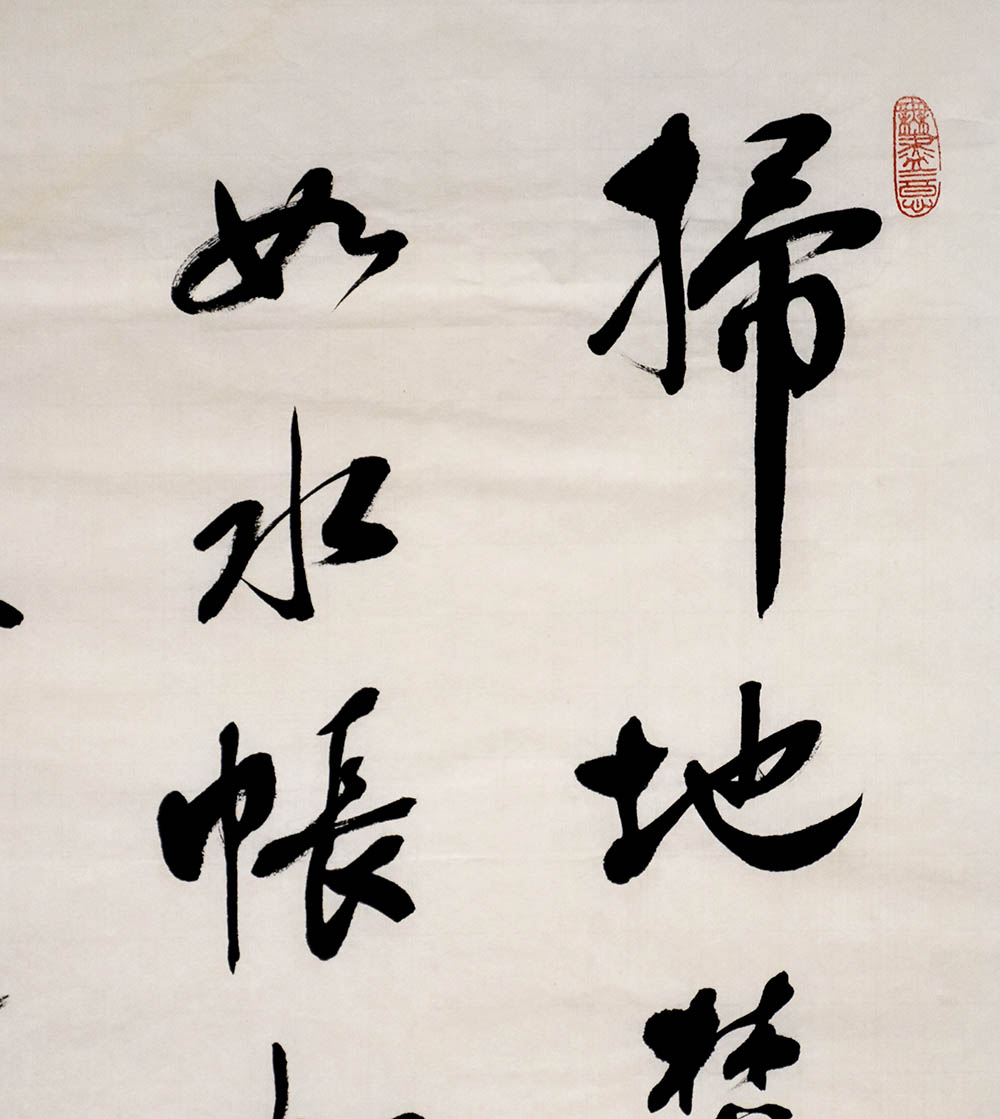 掃地焚
如水帳